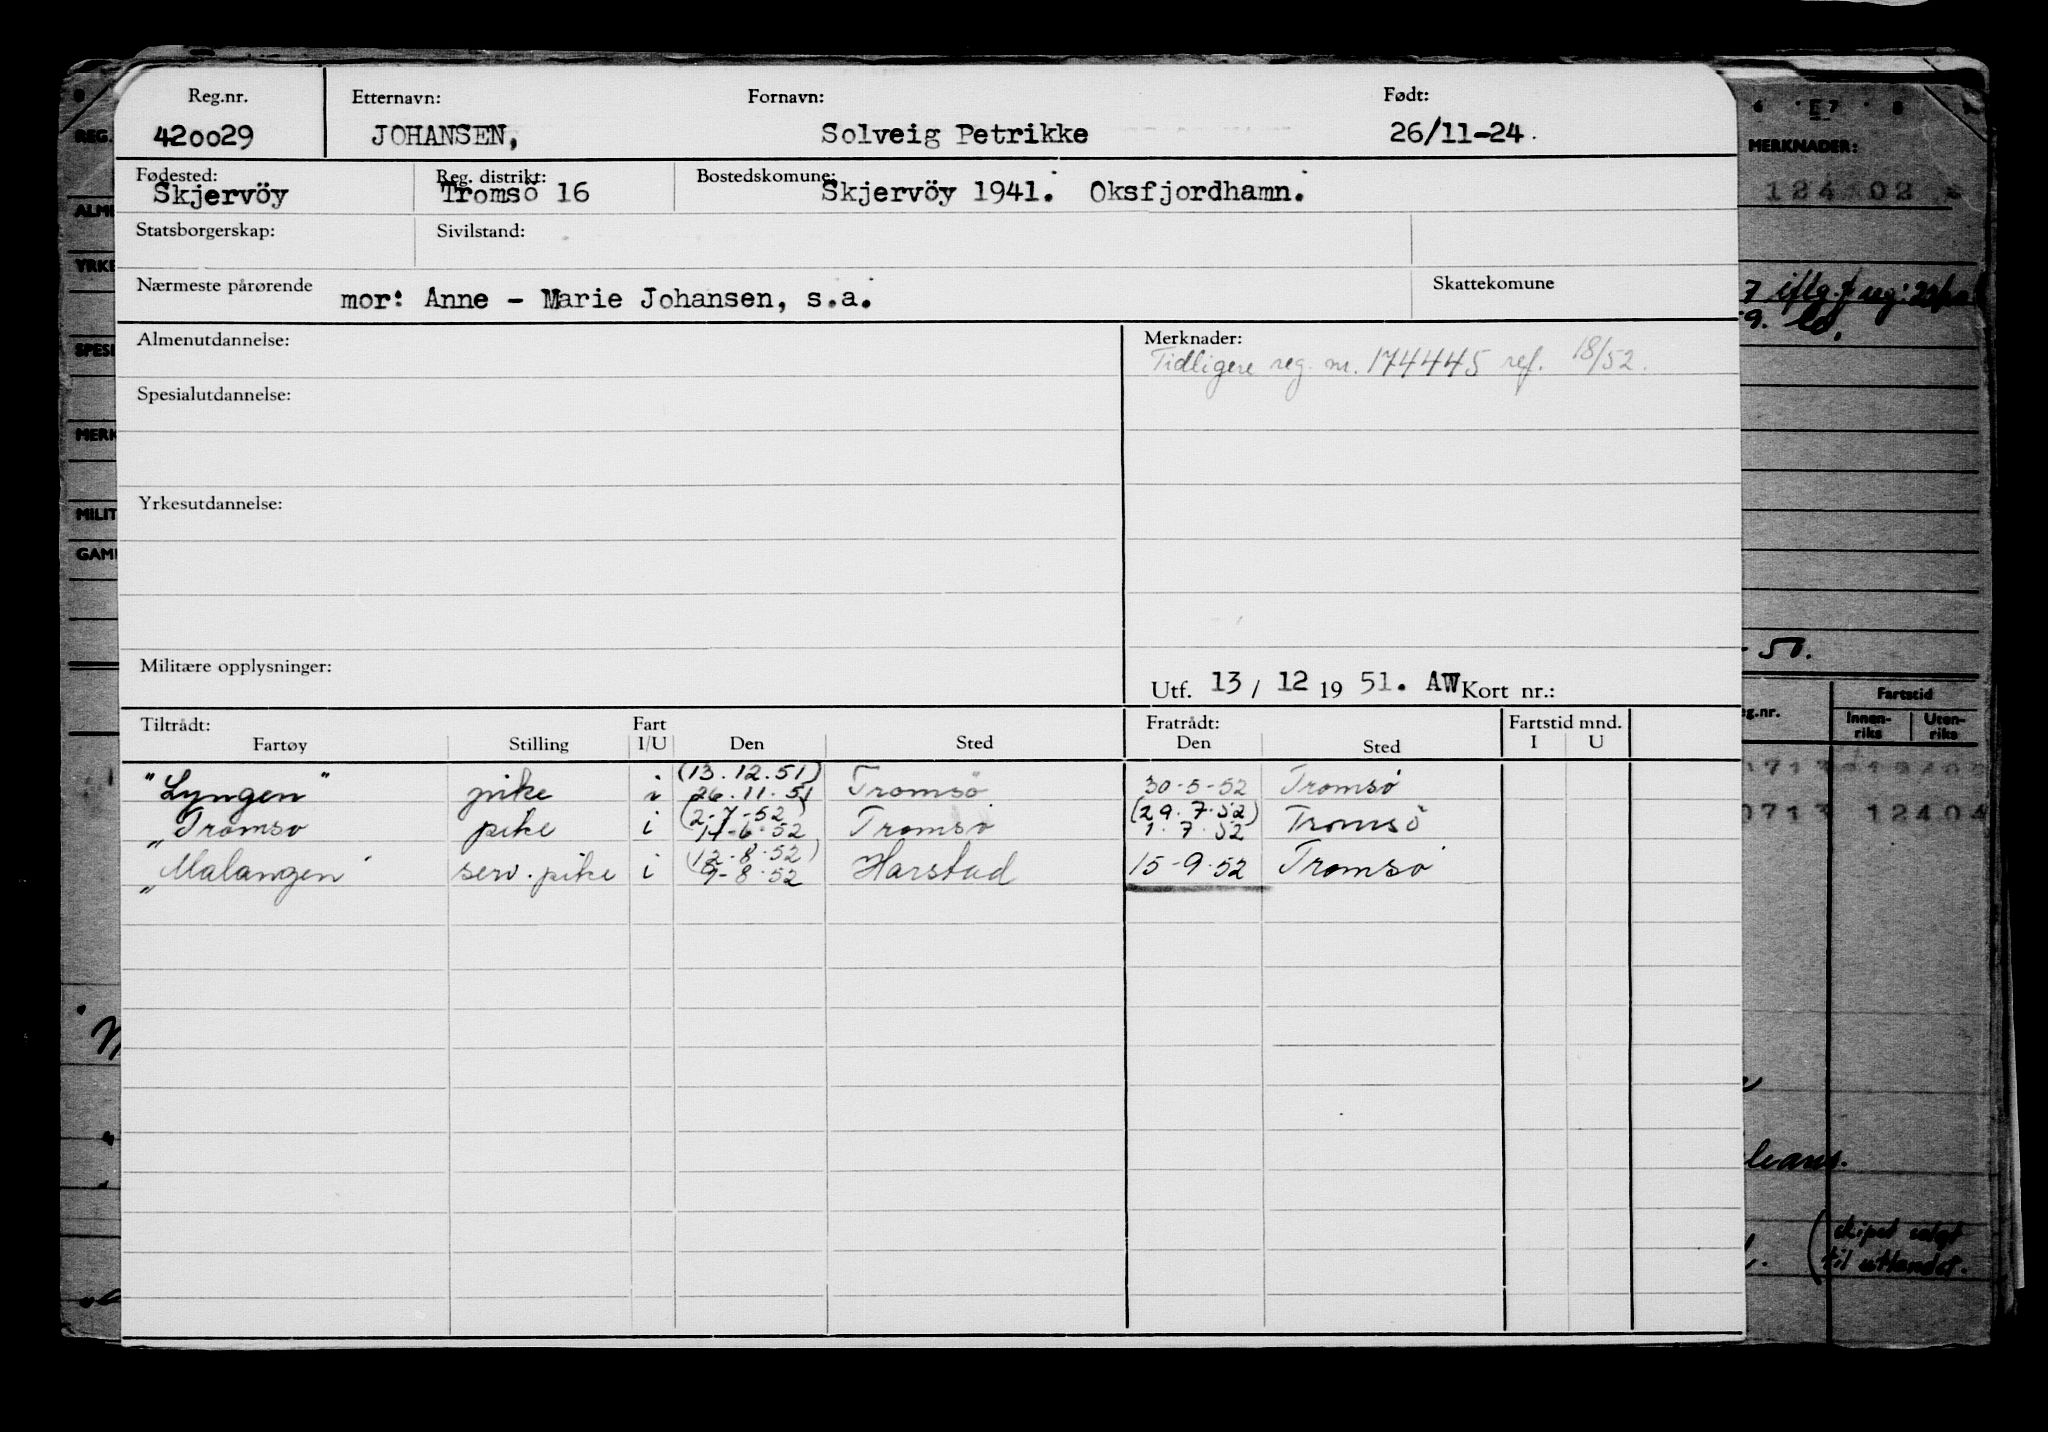 Reg.nr. Etternavn: Fornavn: Født:
420029 JOHANSEN, Solveig Petrikke 26/11-24.
Fødested: Reg. distrikt: Bostedskomune:
Skjervöy Tromsö 16 Skjervöy 1941. Oksfjordhamn.
Statsborgerskap: Sivilstand:
Nærmeste pårørende mor: Anne - Marie Johansen, s.a. Skattekomune
Almenutdannelse: Merknader:
Tidligere reg. nr. 174445 ref. 18/52.
Spesialutdannelse:
Yrkesutdannelse:
Militære opplysninger:
Utf. 13 / 12 19 51. AW Kort nr.:
Tiltrådt: Fart Fratrådt: Fartstid mnd.
Fartøy Stilling I/U Den Sted Den Sted I U
(13.12.51)
"Lyngen" pike i 26.11.51 Tromsö 30-5-52 Tromsö
(2-7-52) (29.7.52)
"Tromsö pike i 14-6-52 Tromsö 1.7.52 Tromsö
(12-8.52)
"Malangen" serv.pike i 9-8.52 Harstad 15-9.52 Tromsö
REG.
MERKNADER:
124 02
- 50.
Fartstid
eg.nr. Innen-riks Uten-riks
0713 12404
(skipet solgt
til utlandet.